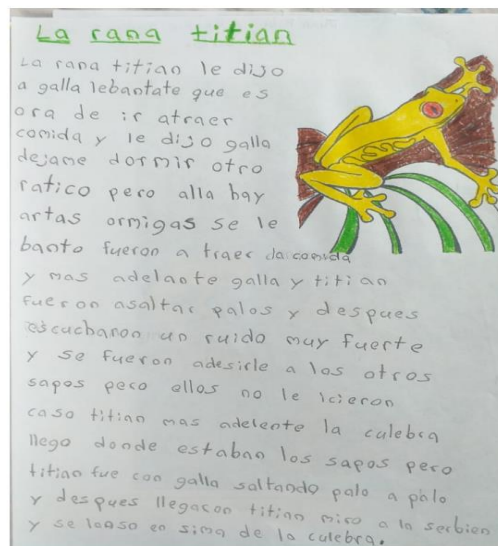 La rana titian
La rana titian le dijo
a galla lebantate que es
ora de ir atraer
comida y le dijo galla
dejame dormir otro
ratico pero alla hay
artas ormigas se le
banto fueron a traer la comida
y mas adelante galla y titian
fueron asaltar palos y despues
escucharon un ruido muy fuerte
y se fueron adesirle a los otros
sapos pero ellos no le icieron
caso titian mas adelente la culebra
llego donde estaban los sapos pero
titian fue con galla saltando palo a palo
y despues llegaron titian miro a la serbien
y se lanso en sima de la culebra.